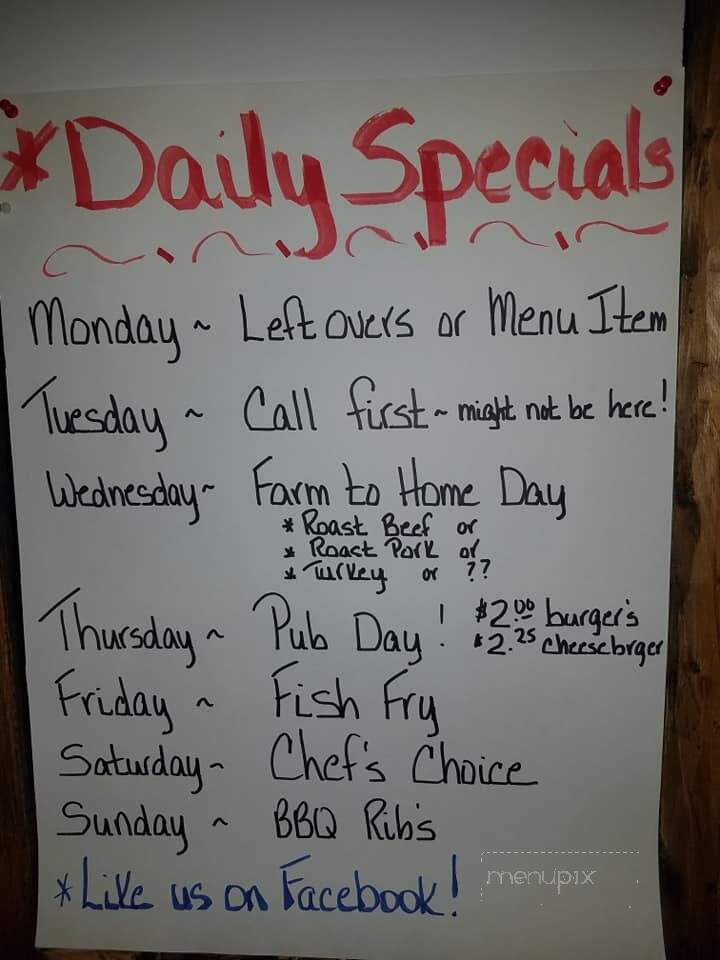 *Daily Specials
Monday ~ Left overs or Menu Item
Tuesday ~ Call first ~ might not be here!
Wednesday ~ Farm to Home Day
* Roast Beef or
* Roast Pork or
* Turkey or ??
Thursday ~ Pub Day! $2.00 burger's
$2.25 cheesebrger
Friday ~ Fish Fry
Saturday ~ Chef's Choice
Sunday ~ BBQ Rib's
*Like us on Facebook!
menupix